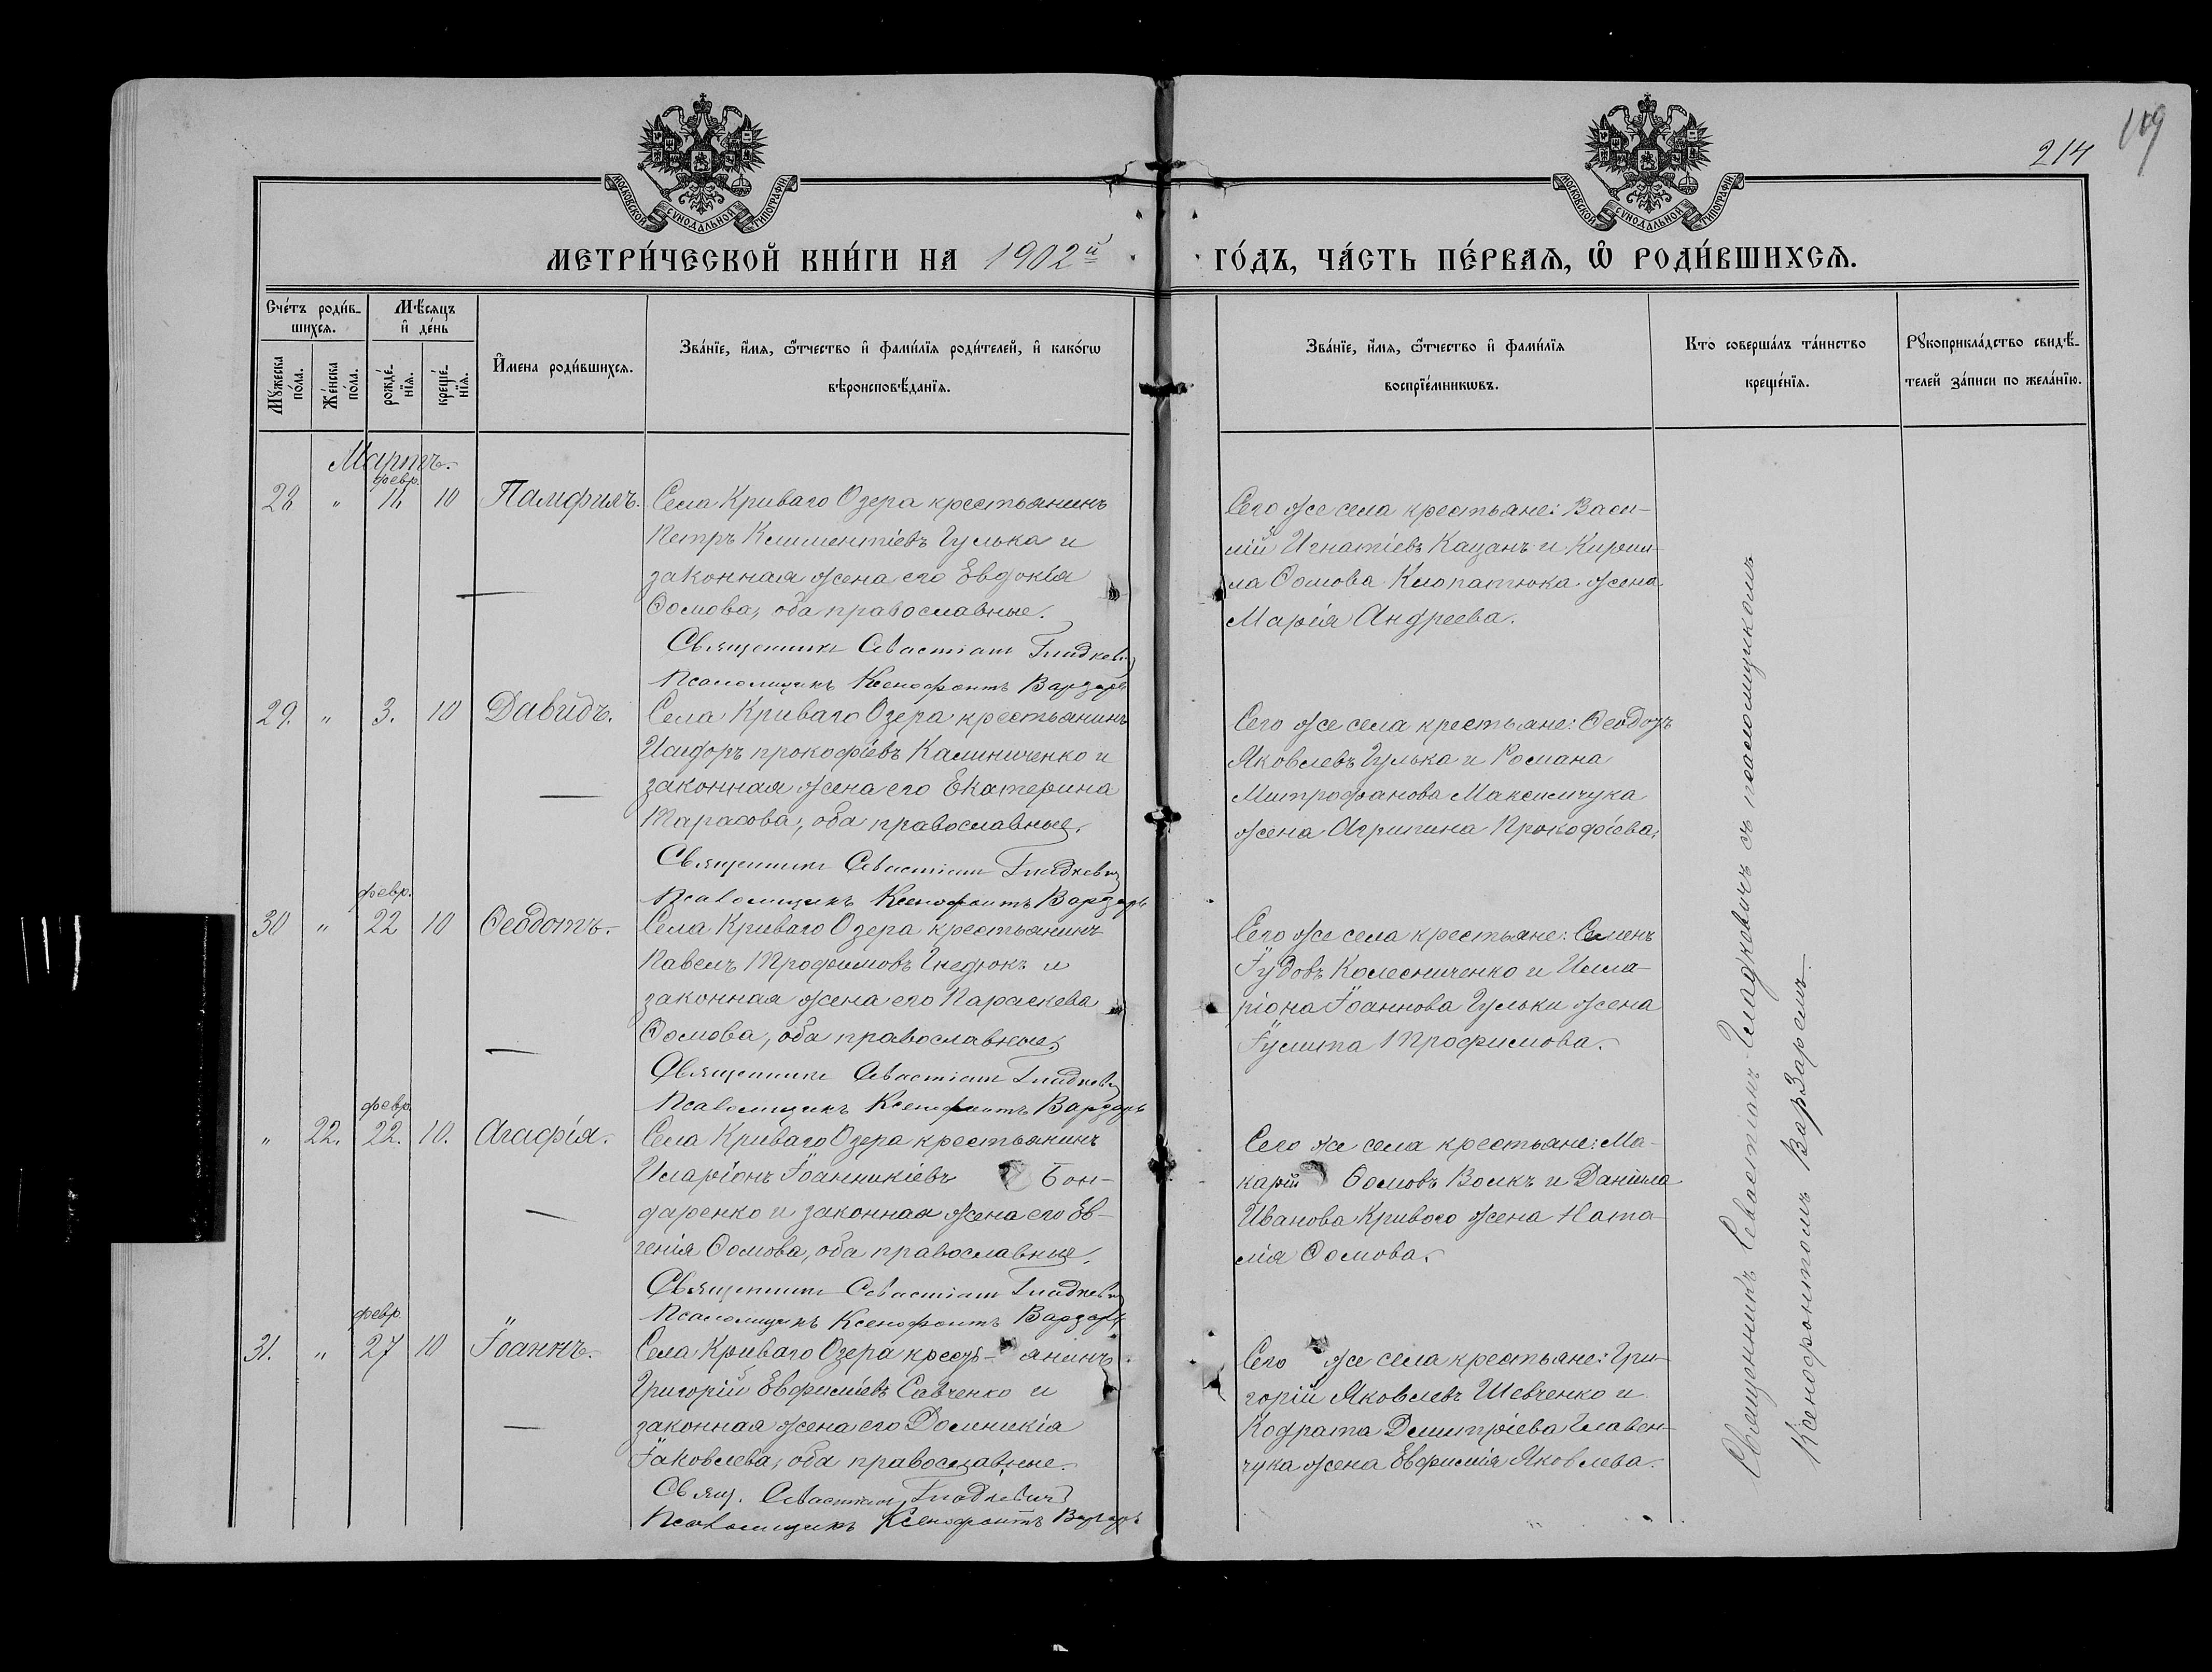 109
214
МОСКОВСКОЙ СУНОДАЛЬНОЙ ТИПОГРАФІИ
МОСКОВСКОЙ СУНОДАЛЬНОЙ ТИПОГРАФІИ
МЕТРИ́ЧЕСКОЙ КНИ́ГИ НА 1902й
ГО́ДЪ, ЧА́СТЬ ПЕ́РВАѦ, Ѡ҆ РОДИ́ВШИХСѦ.
Сче́тъ роди́в-
шихсѧ.
Мꙋ́жеска по́ла.
Же́нска по́ла.
Мѣ́сѧцъ
и҆ де́нь
рожде́-
нїѧ.
креще́-
нїѧ.
И҆́мена роди́вшихсѧ.
Зва́нїе, и҆́мѧ, ѻ҆́тчество и҆ фами́лїѧ роди́телей, и҆ како́гѡ
вѣроисповѣ́данїѧ.
Зва́нїе, и҆́мѧ, ѻ҆́тчество и҆ фами́лїѧ
воспрїе́мникѡвъ.
Кто̀ соверша́лъ та́инство
креще́нїѧ.
Рꙋкоприкла́дство свидѣ́-
телей за́писи по жела́нїю.
Мартъ.
февр.
28 " 11. 10 Памфилъ.
Села Криваго Озера крестьянинъ
Петръ Климентіевъ Гулька и
законная жена его Евдокія
Ѳомова, оба православные.
Священникъ Севастіанъ Гладкевич
Псаломщикъ Ксенофонтъ Варзарь
Сего же села крестьяне: Васи-
лій Игнатіевъ Кацанъ и Кирил-
ла Ѳомова Клопатюка жена
Марія Андреева.
29. " 3. 10 Давидъ.
Села Криваго Озера крестьянинъ
Исидоръ прокофіевъ Калиниченко и
законная жена его Екатерина
Тарасова, оба православные.
Священникъ Севастіанъ Гладкевич
Псаломщикъ Ксенофонтъ Варзарь
Сего же села крестьяне: Ѳеодозъ
Яковлевъ Гулька и Романа
Митрофанова Максимчука
жена Агрипина Прокофіева.
февр.
30 " 22 10 Ѳеодотъ.
Села Криваго Озера крестьянинъ
Павелъ Трофимовъ Гнедюкъ и
законная жена его Параскева
Ѳомова, оба православные.
Священникъ Севастіанъ Гладкевич
Псаломщикъ Ксенофонтъ Варзарь
Сего же села крестьяне: Семенъ
Іудовъ Колесниченко и Илла-
ріона Іоаннова Гульки жена
Іулита Трофимова.
февр.
" 22. 22. 10. Агафія.
Села Криваго Озера крестьянинъ
Иларіонъ Іоанникіевъ Бон-
даренко и законная жена его Ев-
генія Ѳомова, оба православные.
Священникъ Севастіанъ Гладкевич
Псаломщикъ Ксенофонтъ Варзарь
Сего же села крестьяне: Ма-
карій Ѳомовъ Волкъ и Даніила
Иванова Кривого жена Ната-
лія Ѳомова.
февр.
31. " 27 10 Іоаннъ.
Села Криваго Озера кресть- янинъ
Григорій Евфиміевъ Савченко и
законная жена его Домникія
Іаковлева, оба православные.
Свящ. Севастіанъ Гладкевичъ
Псаломщикъ Ксенофонтъ Варзарь
Сего же села крестьяне: Гри-
горій Яковлевъ Шевченко и
Кодрата Димитріева Главен-
чука жена Евфимія Яковлева.
Священникъ Севастіанъ Гладкевичъ съ псаломщикомъ
Ксенофонтомъ Варзаремъ